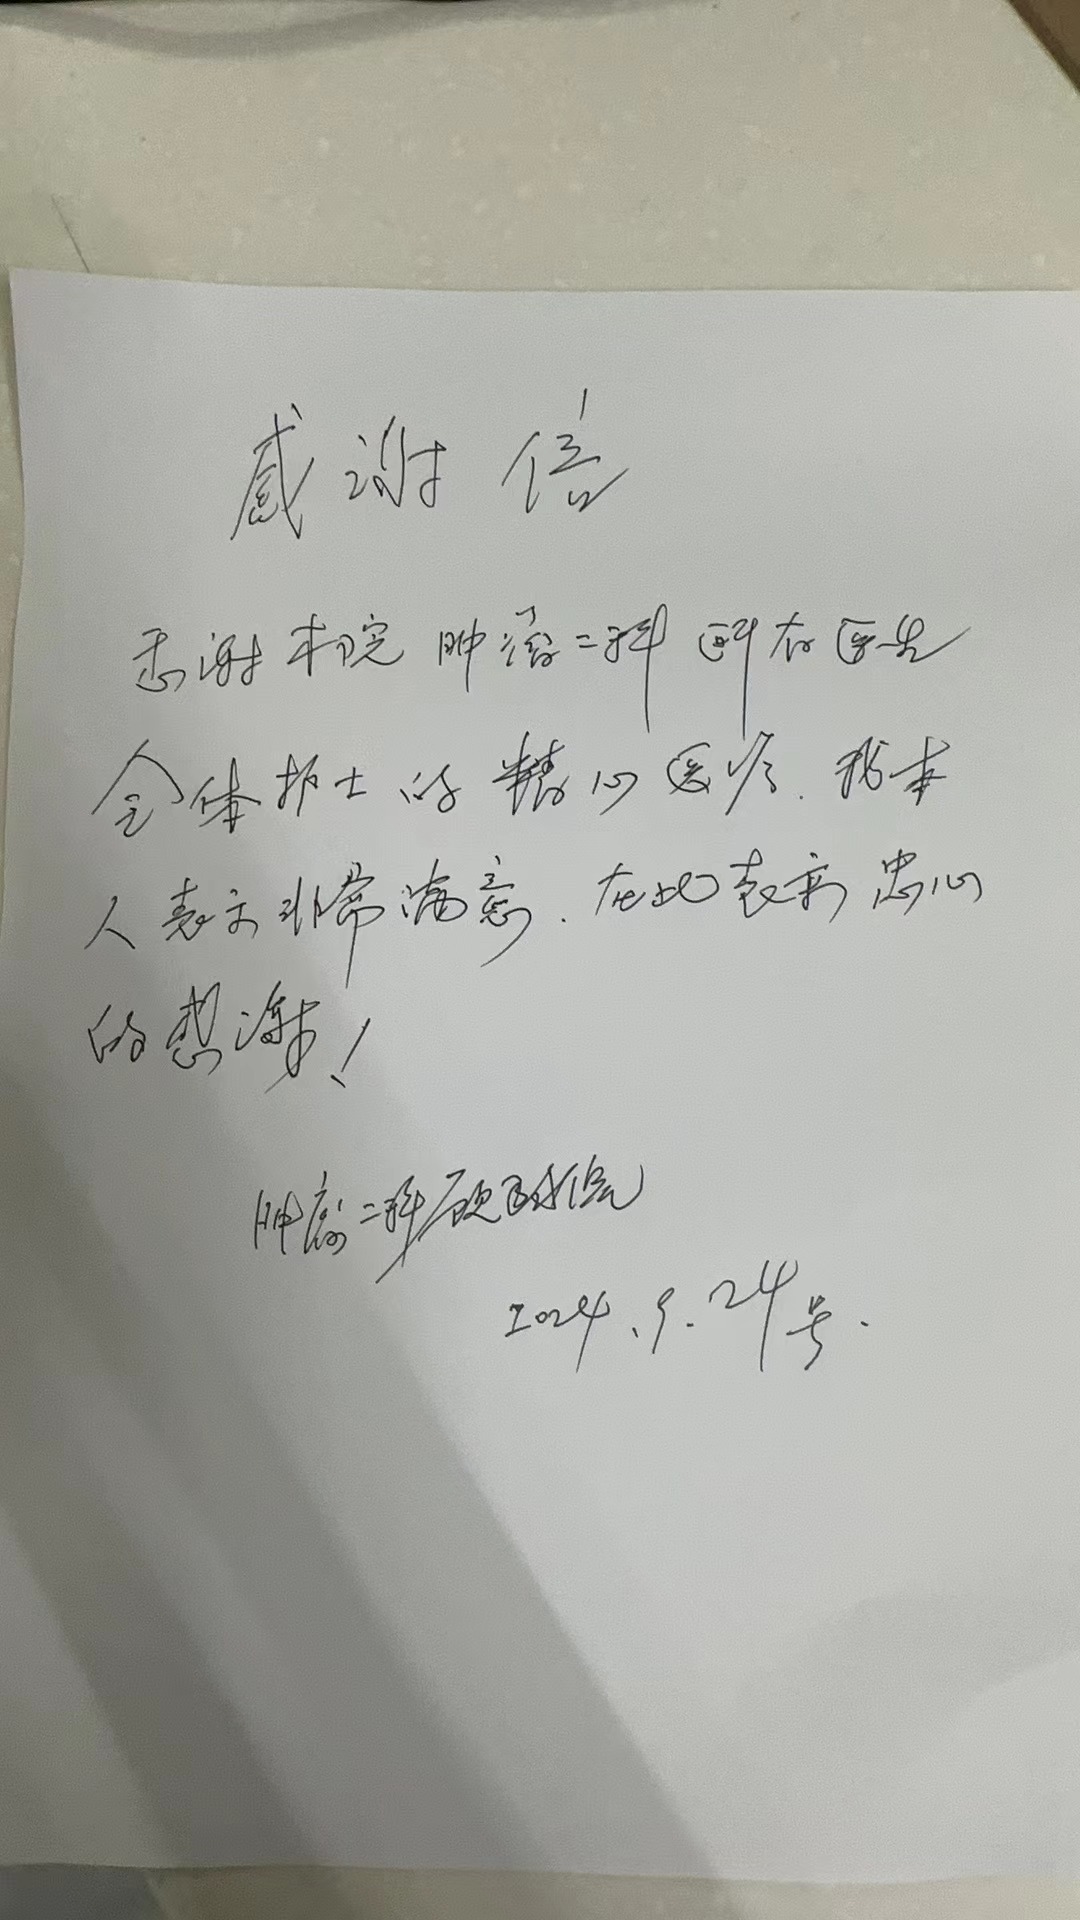 感谢信
感谢本院肿瘤二科 医生
全体护士的精心医疗.我本
人表示非常满意.在此表示忠心
的感谢!
肿瘤二科
2024.9.24号.